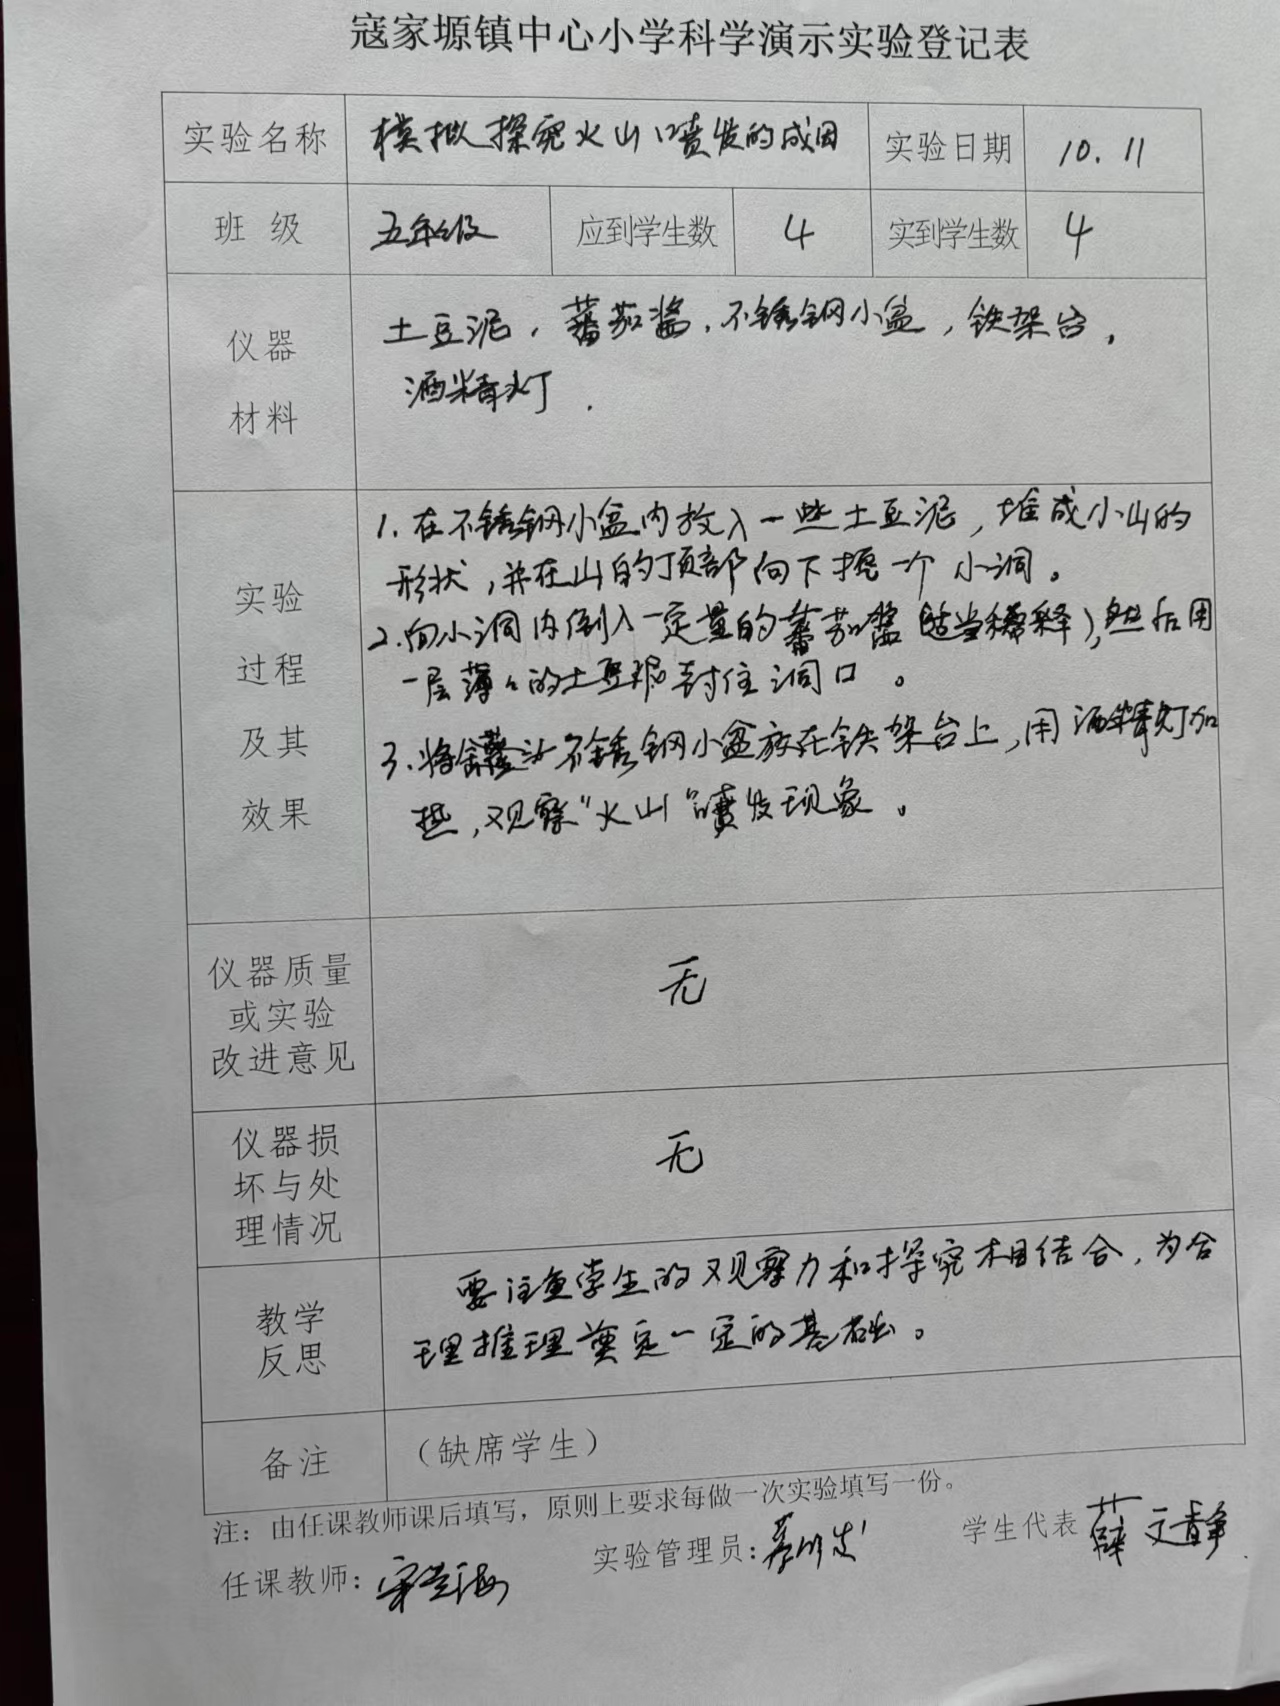 寇家塬镇中心小学科学演示实验登记表
实验名称 模拟探究火山喷发的成因 实验日期 10.11
班 级 五年级 应到学生数 4 实到学生数 4
仪器
材料
土豆泥，蕃茄酱，不锈钢小盆，铁架台，
酒精灯．
实验
过程
及其
效果
1.在不锈钢小盆内放入一些土豆泥，堆成小山的
形状，并在山的顶部向下挖一个小洞。
2.向小洞内倒入一定量的蕃茄酱(适当稀释)，然后用
一层薄々的土豆泥封住洞口。
3.将不锈钢小盆放在铁架台上，用酒精灯加
热，观察“火山”喷发现象。
仪器质量
或实验
改进意见
无
仪器损
坏与处
理情况
无
教学
反思
要注重学生的观察力和探究相结合，为合
理推理奠定一定的基础。
备注 （缺席学生）
注：由任课教师课后填写，原则上要求每做一次实验填写一份。
任课教师： 实验管理员： 学生代表 薛文静